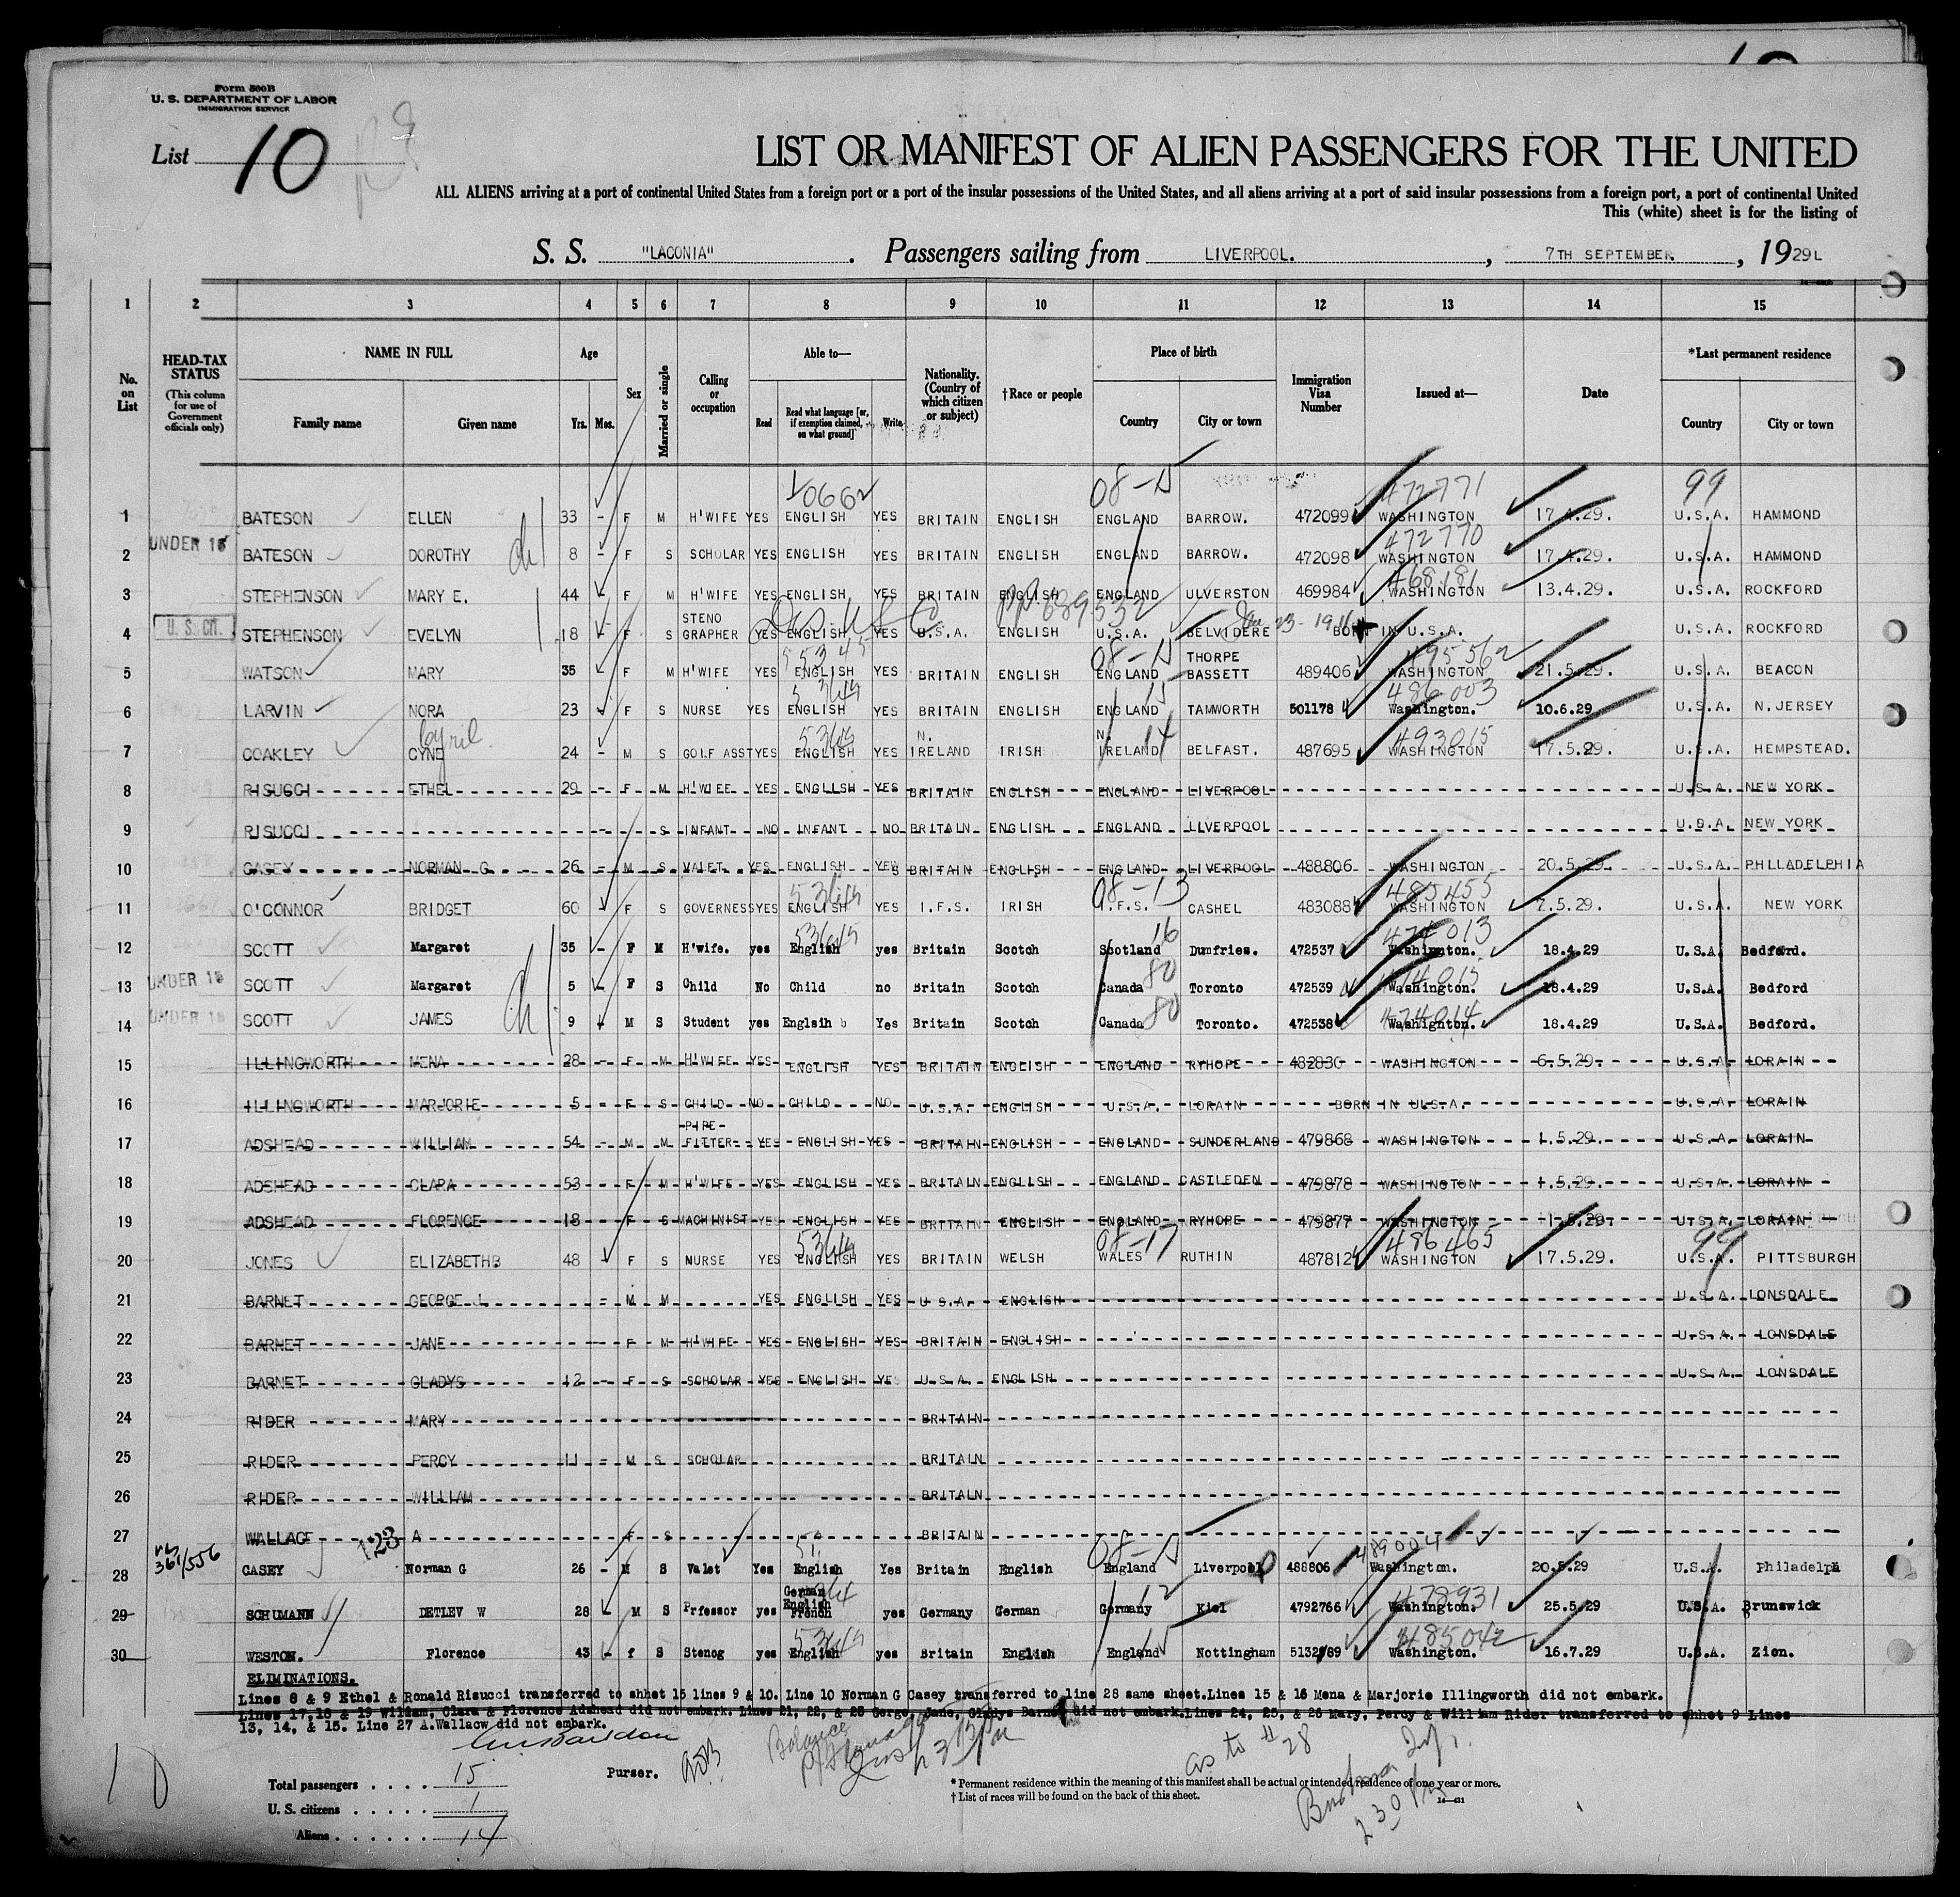 Form 500B
U. S. DEPARTMENT OF LABOR
IMMIGRATION SERVICE
List 10
LIST OR MANIFEST OF ALIEN PASSENGERS FOR THE UNITED
ALL ALIENS arriving at a port of continental United States from a foreign port or a port of the insular possessions of the United States, and all aliens arriving at a port of said insular possessions from a foreign port, a port of continental United
This (white) sheet is for the listing of
S. S. "LACONIA". Passengers sailing from LIVERPOOL. , 7TH SEPTEMBER , 1929L
1 2 3 4 5 6 7 8 9 10 11 12 13 14 15
No. on List
HEAD-TAX STATUS (This column for use of Government officials only)
NAME IN FULL Family name Given name
Age Yrs. Mos.
Sex
Married or single
Calling or occupation
Able to— Read Read what language [or, if exemption claimed, on what ground] Write
Nationality. (Country of which citizen or subject)
†Race or people
Place of birth Country City or town
Immigration Visa Number
Issued at—
Date
*Last permanent residence Country City or town
08-15 472771 99
1 BATESON ELLEN 33 - F M H'WIFE YES ENGLISH YES BRITAIN ENGLISH ENGLAND BARROW. 472099 WASHINGTON 17.4.29. U.S.A. HAMMOND
UNDER 16 472770
2 BATESON DOROTHY 8 - F S SCHOLAR YES ENGLISH YES BRITAIN ENGLISH ENGLAND BARROW. 472098 WASHINGTON 17.4.29. U.S.A. HAMMOND
468181
3 STEPHENSON MARY E. 44 - F M H'WIFE YES ENGLISH YES BRITAIN ENGLISH ENGLAND ULVERSTON 469984 WASHINGTON 13.4.29. U.S.A. ROCKFORD
U. S. CIT.
4 STEPHENSON EVELYN 18 - F S STENO GRAPHER YES ENGLISH YES U.S.A. ENGLISH U.S.A. BELVIDERE BORN IN U.S.A. U.S.A. ROCKFORD
08-15 495562
5 WATSON MARY 35 - F M H'WIFE YES ENGLISH YES BRITAIN ENGLISH ENGLAND THORPE BASSETT 489406 WASHINGTON 21.5.29. U.S.A. BEACON
486003
6 LARVIN NORA 23 - F S NURSE YES ENGLISH YES BRITAIN ENGLISH ENGLAND TAMWORTH 501178 Washington. 10.6.29 U.S.A. N.JERSEY
Cyril 493015
7 COAKLEY CYNE 24 - M S GOLF ASST YES ENGLISH YES N. IRELAND IRISH N. IRELAND 14 BELFAST. 487695 WASHINGTON 17.5.29. U.S.A. HEMPSTEAD.
8 RISUCCI ETHEL 29 - F M H'WIEE YES ENGLLSH YES BRITAIN ENGLISH ENGLAND LIVERPOOL U.S.A. NEW YORK
9 RISUCCI - S INFANT NO INFANT NO BRITAIN ENGLISH ENGLAND LLVERPOOL U.S.A. NEW YORK
10 CASEY NORMAN G. 26 - M S VALET YES ENGLISH YEW S BRITAIN ENGLISH ENGLAND LIVERPOOL 488806 WASHINGTON 20.5.29. U.S.A. PHLLADELPHIA
08-13 485455
11 O'CONNOR BRIDGET 60 F S GOVERNESS YES ENGLISH YES I.F.S. IRISH I.F.S. CASHEL 483088 WASHINGTON 7.5.29. U.S.A. NEW YORK
12 SCOTT Margaret 35 - F M H'wife. yes English yes Britain Scotch Scotland 16 Dumfries. 472537 Washignton. 18.4.29 U.S.A. Bedford.
UNDER 16
13 SCOTT Margaret 5 - F S Child No Child no Britain Scotch Canada 80 Toronto 472539 Washington. 18.4.29 U.S.A. Bedford
UNDER 16
14 SCOTT JAMES 9 - M S Student yes Englsih Yes Britain Scotch Canada 80 Toronto. 472538 Washignton. 18.4.29 U.S.A. Bedford.
15 ILLINGWORTH MENA 28 - F M H'WIFE YES ENGLISH YES BRITAIN ENGLISH ENGLAND RYHOPE 482830 WASHINGTON 6.5.29. U.S.A. LORAIN
16 ILLINGWORTH MARJORIE 5 - F S CHILD NO CHILD NO U.S.A. ENGLISH U.S.A. LORAIN BORN IN U.S.A. U.S.A. LORAIN
17 ADSHEAD WILLIAM 54 - M M PIPE-FITTER YES ENGLISH YES BRITAIN ENGLISH ENGLAND SUNDERLAND 479868 WASHINGTON 1.5.29. U.S.A. LORAIN
18 ADSHEAD CLARA 53 - F M H'WIFE YES ENGLISH YES BRITAIN ENGLISH ENGLAND CASTLEDEN 479878 WASHINGTON 1.5.29. U.S.A. LORAIN
19 ADSHEAD FLORENCE 18 - F S MACHINIST YES ENGLISH YES BRITAIN ENGLISH ENGLAND RYHOPE 479877 WASHINGTON 1.5.29. U.S.A. LORAIN
08-17 486465 99
20 JONES ELIZABETHB 48 F S NURSE YES ENGLISH YES BRITAIN WELSH WALES RUTHIN 487812 WASHINGTON 17.5.29. U.S.A. PITTSBURGH
21 BARNET GEORGE J. - M M YES ENGLISH YES U.S.A. ENGLISH U.S.A. LONSDALE
22 BARNET JANE F M H'WIFE YES ENGLISH YES BRITAIN ENGLISH U.S.A. LONSDALE
23 BARNET GLADYS 12 - F S SCHOLAR YES ENGLISH YE U.S.A. ENGLISH U.S.A. LONSDALE
24 RIDER MARY BRITAIN
25 RIDER PERCY 11 - M S. SCHOLAR BRITAIN
26 RIDER WILLIAM BRITALN
27 WALLACE A F S BRITAIN
361/556 123 08-15 489004
28 CASEY Norman G 26 - M S Valet Yes English Yes Britain English England Liverpool 488806 Washington. 20.5.29 U.S.A. Philadelpa
29 SCHUMANN DETLEV W 28 - M S Prfessor yes German English French yes Germany German Germany 12 Kiel 4792766 Washington. 478931 25.5.29 U.S.A. Brunswick
485042
30 WESTON. Florence 43 - f S Stenog yes English yes Britain English England 15 Nottingham 5132889 Washington. 16.7.29 U.S.A. Zion.
ELIMINATIONS.
Lines 8 & 9 Ethel & Ronald Risucci transferred to shhet 15 lines 9 & 10. Line 10 Norman G Casey transferred to line 28 same sheet.Lines 15 & 16 Mena & Marjorie Illingworth did not embark.
Lines 17,18 & 19 William, Clara & Florence Adshead did not embark. Lines 21, 22, & 23 Gerge, Jane, Gladys Barnet did not embark.Lines 24, 25, & 26 Mary, Percy & William Rider transferred to shhet 9 Lines
13, 14, & 15. Line 27 A.Wallacw did not embark.
Purser.
10
as to # 28
Total passengers . . . . 15
U. S. citizens . . . . . 1
Aliens . . . . . . 14
* Permanent residence within the meaning of this manifest shall be actual or intended residence of one year or more.
† List of races will be found on the back of this sheet.